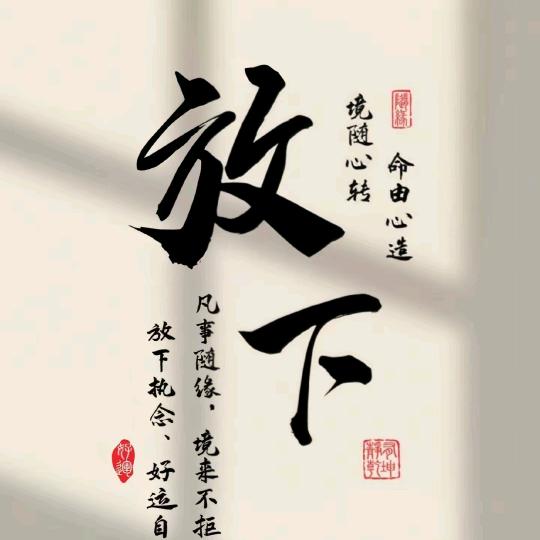 放下
命由心造
境随心转
凡事随缘，境来不拒
放下执念、好运自
随缘
好運